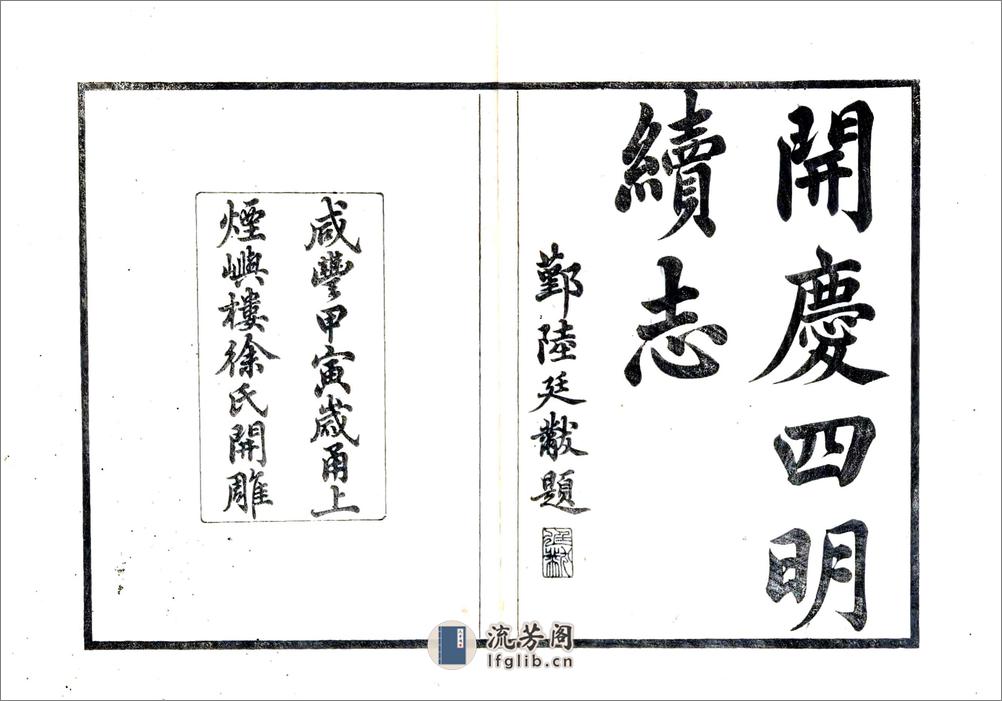 開慶四明
續志
鄞陸廷黻題
咸豐甲寅歲甬上
煙嶼樓徐氏開雕
流芳阁
lfglib.cn